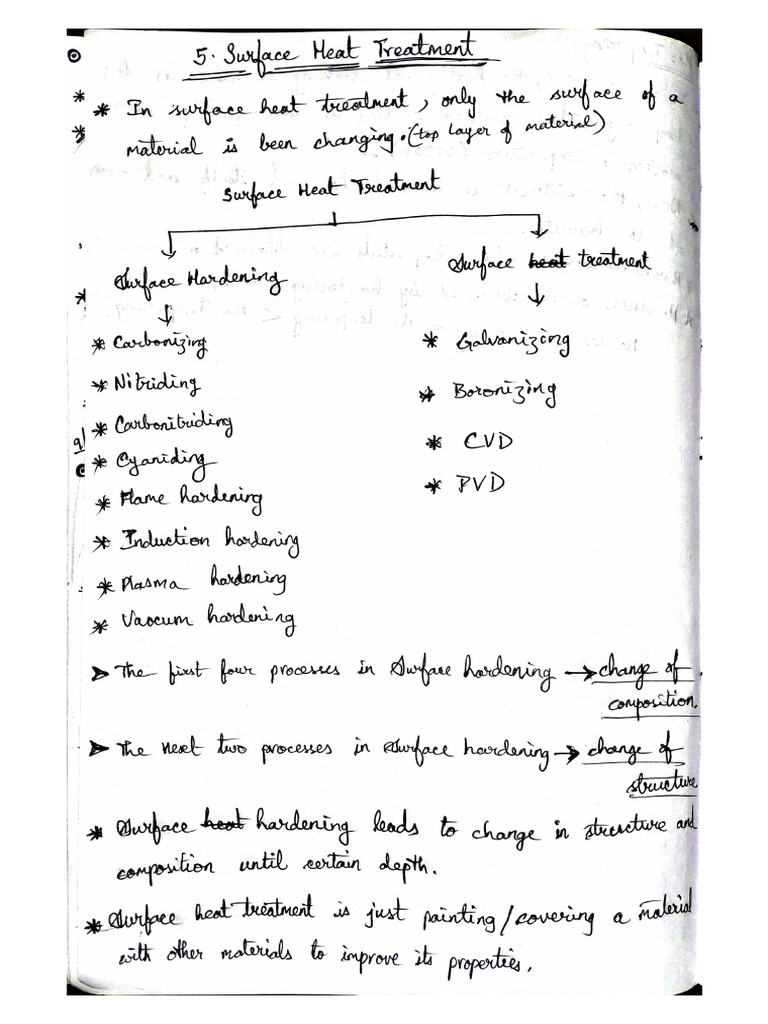 5. Surface Heat Treatment
* In surface heat treatment, only the surface of a
material is been changing. (top layer of material)
Surface Heat Treatment
Surface Hardening
Surface heat treatment
* Carbonizing
* Galvanizing
* Nitriding
* Boronizing
* Carbonitriding
* CVD
* Cyaniding
* PVD
* Flame hardening
* Induction hardening
* Plasma hardening
* Vaocum hardening
➤ The first four processes in Surface hardening → change of
composition.
➤ The next two processes in Surface hardening → change of
structure
* Surface heat hardening leads to change in structure and
composition until certain depth.
* Surface heat treatment is just painting/covering a material
with other materials to improve its properties.